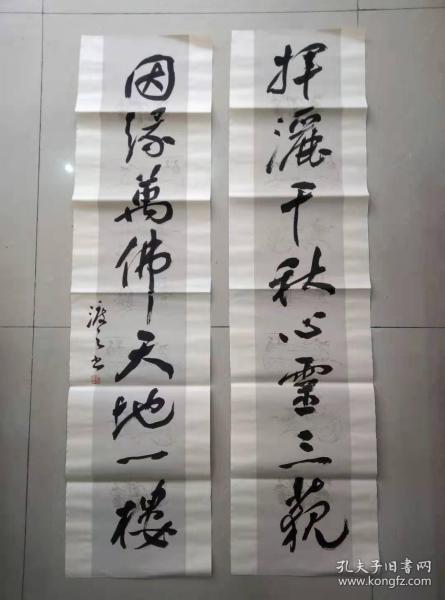 揮灑千秋心靈三藐
因緣萬佛天地一樓
孔夫子旧书网
www.kongfz.com